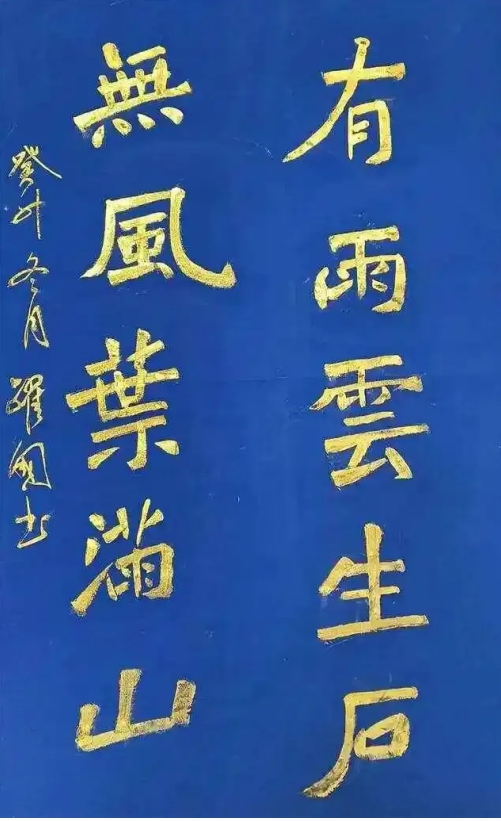 有雨雲生石
無風葉滿山
癸卯冬月躍國书